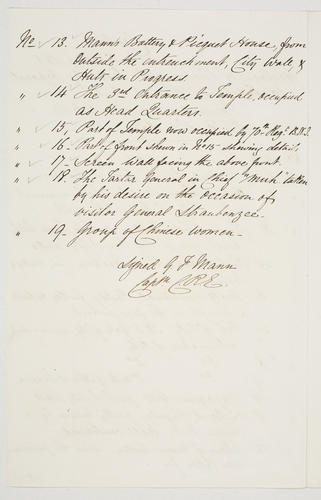 No 13. Mann's Battery & Picquet House, from
outside the intrenchment, City Wall &
Huts in Progress.
" 14 The 3rd Entrance to Temple, occupied
as Head Quarters.
" 15, Part of Temple now occupied by 70th Regt B.N.I.
" 16 - Part of front shown in No 15 - showing detail,
" 17 - Screen Wall facing the above front.
" 18. The Tartar General in Chief "Muh" taken
by his desire on the occasion of
visitor General Straubenzee -
" 19. Group of Chinese women -
Signed G F Mann
Captn C.R.E.